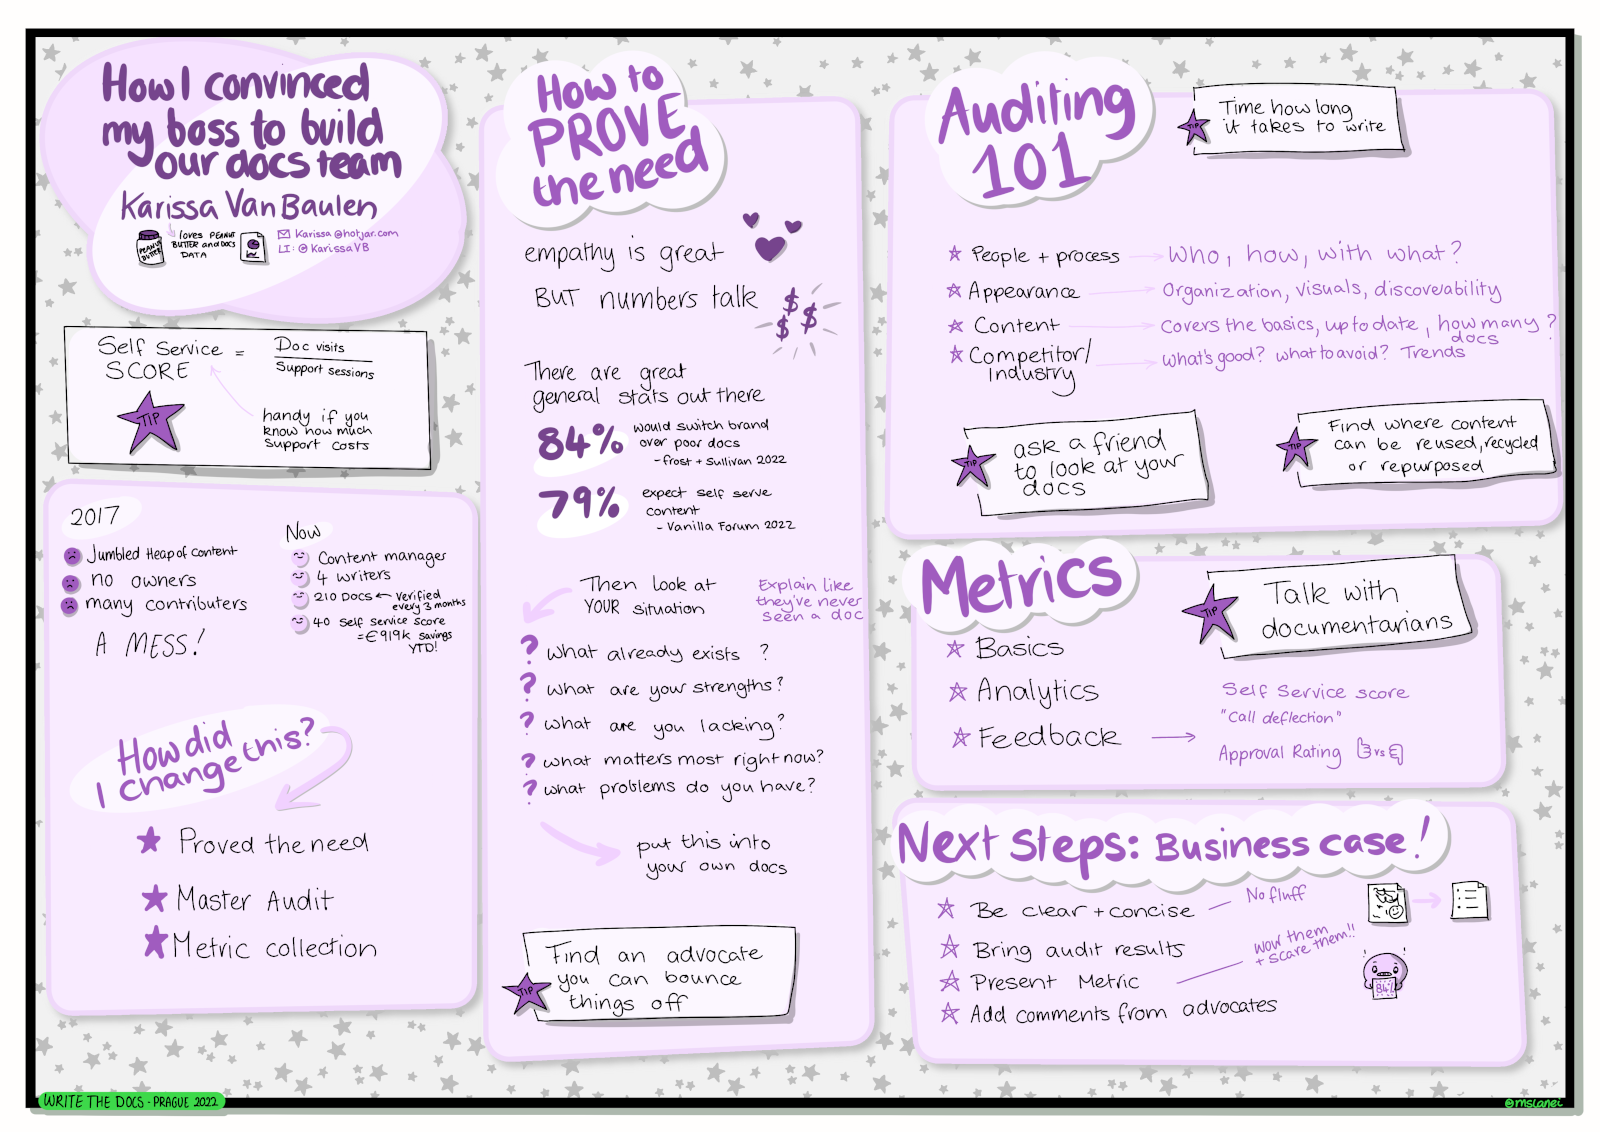 How I convinced
my boss to build
our docs team
Karissa Van Baulen
PEANUT
BUTTER
loves PEANUT
BUTTER and DOCS
DATA
Karissa @hotjar.com
LI: @ KarissaVB
Self Service
SCORE
=
Doc visits
Support sessions
TIP
handy if you
know how much
support costs
2017
Jumbled Heap of content
no owners
many contributers
A MESS!
Now
Content manager
4 writers
210 DOCS ← verified
every 3 months
40 self service score
=€919k savings
YTD!
How did
I change this?
Proved the need
Master Audit
Metric collection
How to
PROVE
the need
empathy is great
BUT numbers talk
$ $ $
There are great
general stats out there
84% would switch brand
over poor docs
- Frost + Sullivan 2022
79% expect self serve
content
- Vanilla Forum 2022
Then look at
YOUR situation
Explain like
they've never
seen a doc
? what already exists ?
? what are your strengths?
? what are you lacking?
? what matters most right now?
? what problems do you have?
put this into
your own docs
TIP
Find an advocate
you can bounce
things off
Auditing
101
TIP
Time how long
it takes to write
People + process → Who, how, with what?
Appearance → Organization, visuals, discoveability
Content → Covers the basics, up to date, how many ?
docs
Competitor/
Industry → what's good? what to avoid? Trends
TIP
ask a friend
to look at your
docs
TIP
Find where content
can be reused, recycled
or repurposed
Metrics
TIP
Talk with
documentarians
Basics
Analytics
Feedback →
Self Service score
"Call deflection"
Approval Rating vs
Next Steps: Business case!
Be clear + concise
No fluff
Bring audit results
Present Metric
wow them
+ scare them!!
84%
Add comments from advocates
WRITE THE DOCS - PRAGUE 2022
@mslanei